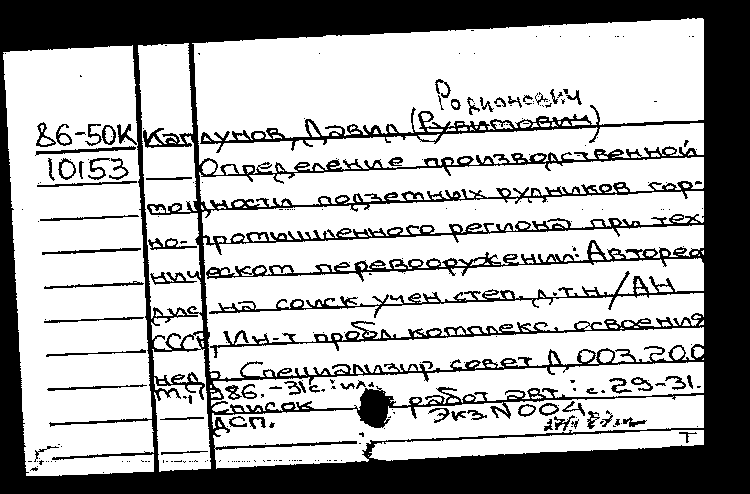 Родионович
86-50К Каплунов, Давид (Рувимович)
10153 Определение производственной
мощности подземных рудников гор-
но-промышленного региона при тех-
ническом перевооружении: Автореф
дис. на соиск. учен. степ. д.т.н. / АН
СССР, Ин-т пробл. комплекс. освоения
недр. Специализир. совет Д 003.20.0
М., 1986. - 31 с.: ил.
Список работ авт.: с. 29-31.
ДСП. Экз. N 004
Т